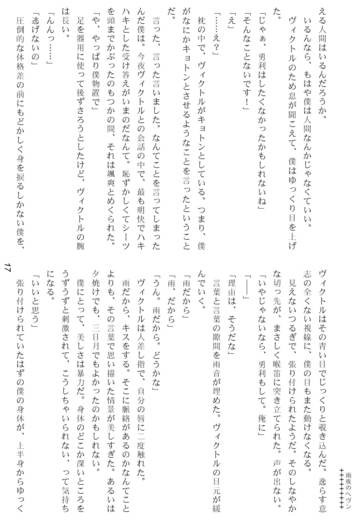 える人間はいるんだろうか。
いるんなら、もはや僕は人間なんかじゃなくていい。
ヴィクトルのため息が聞こえて、僕はゆっくり目を上げ
た。
「じゃぁ、勇利はしたくなかったかもしれないね」
「そんなことないです！」
「え」
「……え？」
枕の中で、ヴィクトルがキョトンとしている。つまり、僕
がなにかキョトンとさせるようなことを言ったということ
だ。
言った、言った言いました。なんてことを言ってしまった
んだ僕は。今夜ヴィクトルとの会話の中で、最も明快でハキ
ハキとした受け答えがいまのだなんて。恥ずかしくてシーツ
を頭までかぶったのもつかの間、それは颯爽とめくられた。
「や、やっぱり僕物置で」
足を器用に使って後ずさろうとしたけど、ヴィクトルの腕
は長い。
「んんっ……」
「逃げないの」
圧倒的な体格差の前にもどかしく身を捩るしかない僕を、
ヴィクトルはその青い目でじっくりと覗き込んだ。逸らす意
志の全くない視線に、僕の目もまた動けなくなる。
見えないつるぎで、張り付けられたようだ。そのしなやか
な切っ先が、まさしく喉笛に突き立てられた。声が出ない。
「いやじゃないなら、勇利もして。俺に」
「――」
「理由は、そうだな」
言葉と言葉の隙間を雨音が埋めた。ヴィクトルの目元が緩
んでいく。
「雨だから」
「雨、だから」
「うん。雨だから、どうかな」
ヴィクトルは人差し指で、自分の唇に二度触れた。
雨だから、キスをする。そこに脈絡があるのかなんてこと
よりも、その言葉で思い描いた情景が美しすぎた。あるいは
夕焼けでも、三日月でもよかったのかもしれない。
僕にとって、美しさは暴力だ。身体のどこか深いところを
うずうずと刺激されて、こうしちゃいられない、って気持ち
になる。
「いいと思う」
張り付けられていたはずの僕の身体が、上半身からゆっく
17
雨夜のヘヴン